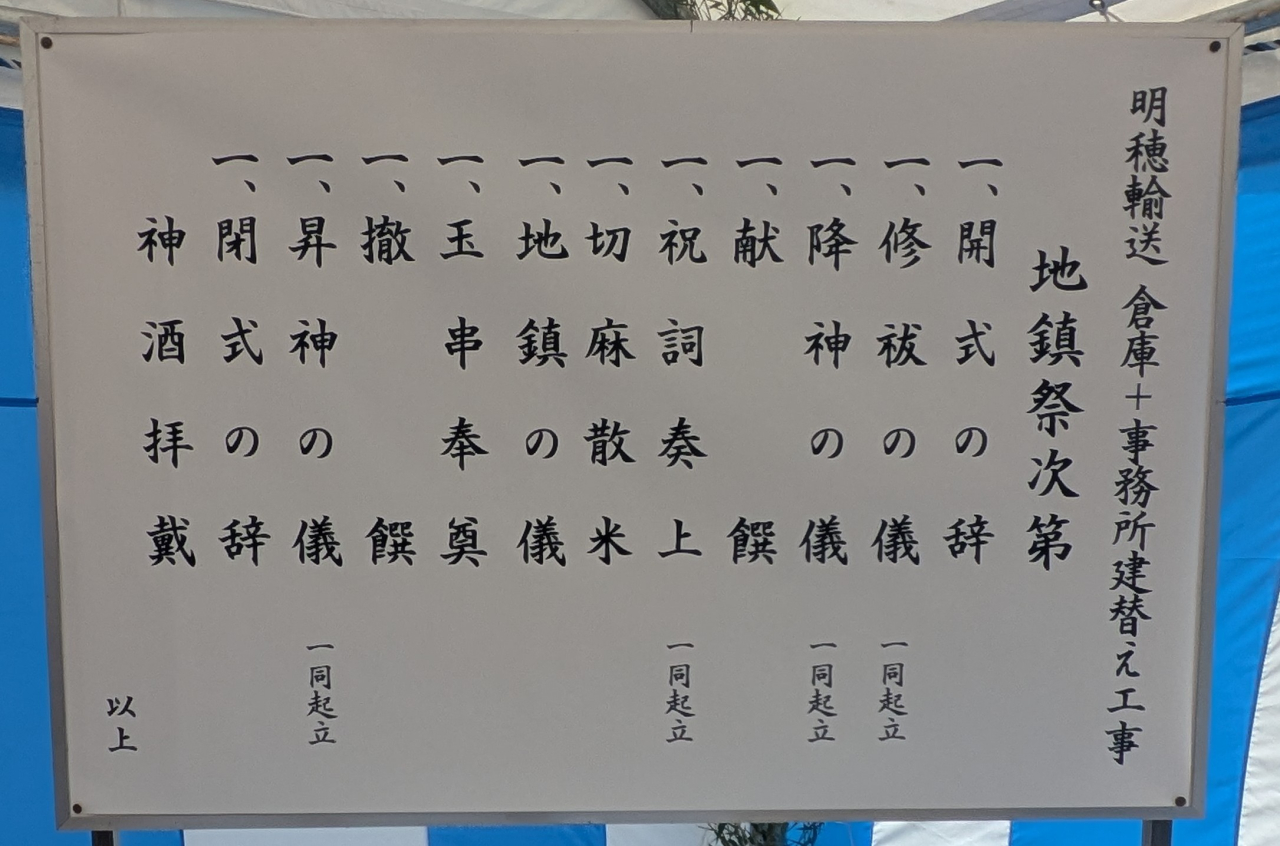 明穂輸送 倉庫+事務所建替え工事
地鎮祭次第
一、開式の辞
一、修祓の儀 一同起立
一、降神の儀 一同起立
一、献饌
一、祝詞奏上 一同起立
一、切麻散米
一、地鎮の儀
一、玉串奉奠
一、撤饌
一、昇神の儀 一同起立
一、閉式の辞
神酒拝戴
以上